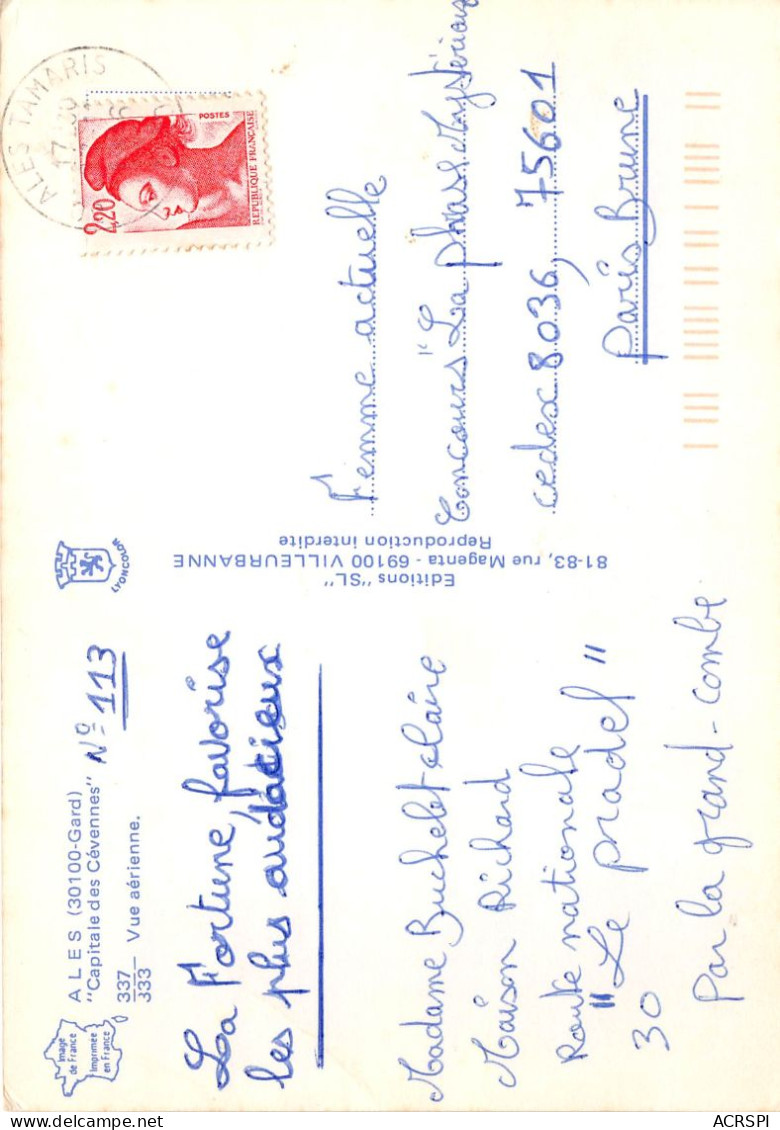 Image
de France
Imprimée
en France
ALES (30100-Gard)
"Capitale des Cévennes"
337
333 — Vue aérienne.
N° 113
La Fortune, favorise
les plus audacieux
Madame Buchelet claire
Maison Richard
Route nationale
"Le pradel"
30
Par la grand-combe
LYONCOLOR
Editions "SL"
81-83, rue Magenta - 69100 VILLEURBANNE
Reproduction interdite
ALES TAMARIS
17
2,20
POSTES
REPUBLIQUE FRANÇAISE
Femme actuelle
Concours "La phrase Mystérieuse
cedex 8036, 75601
Paris Brune
ACRSPI